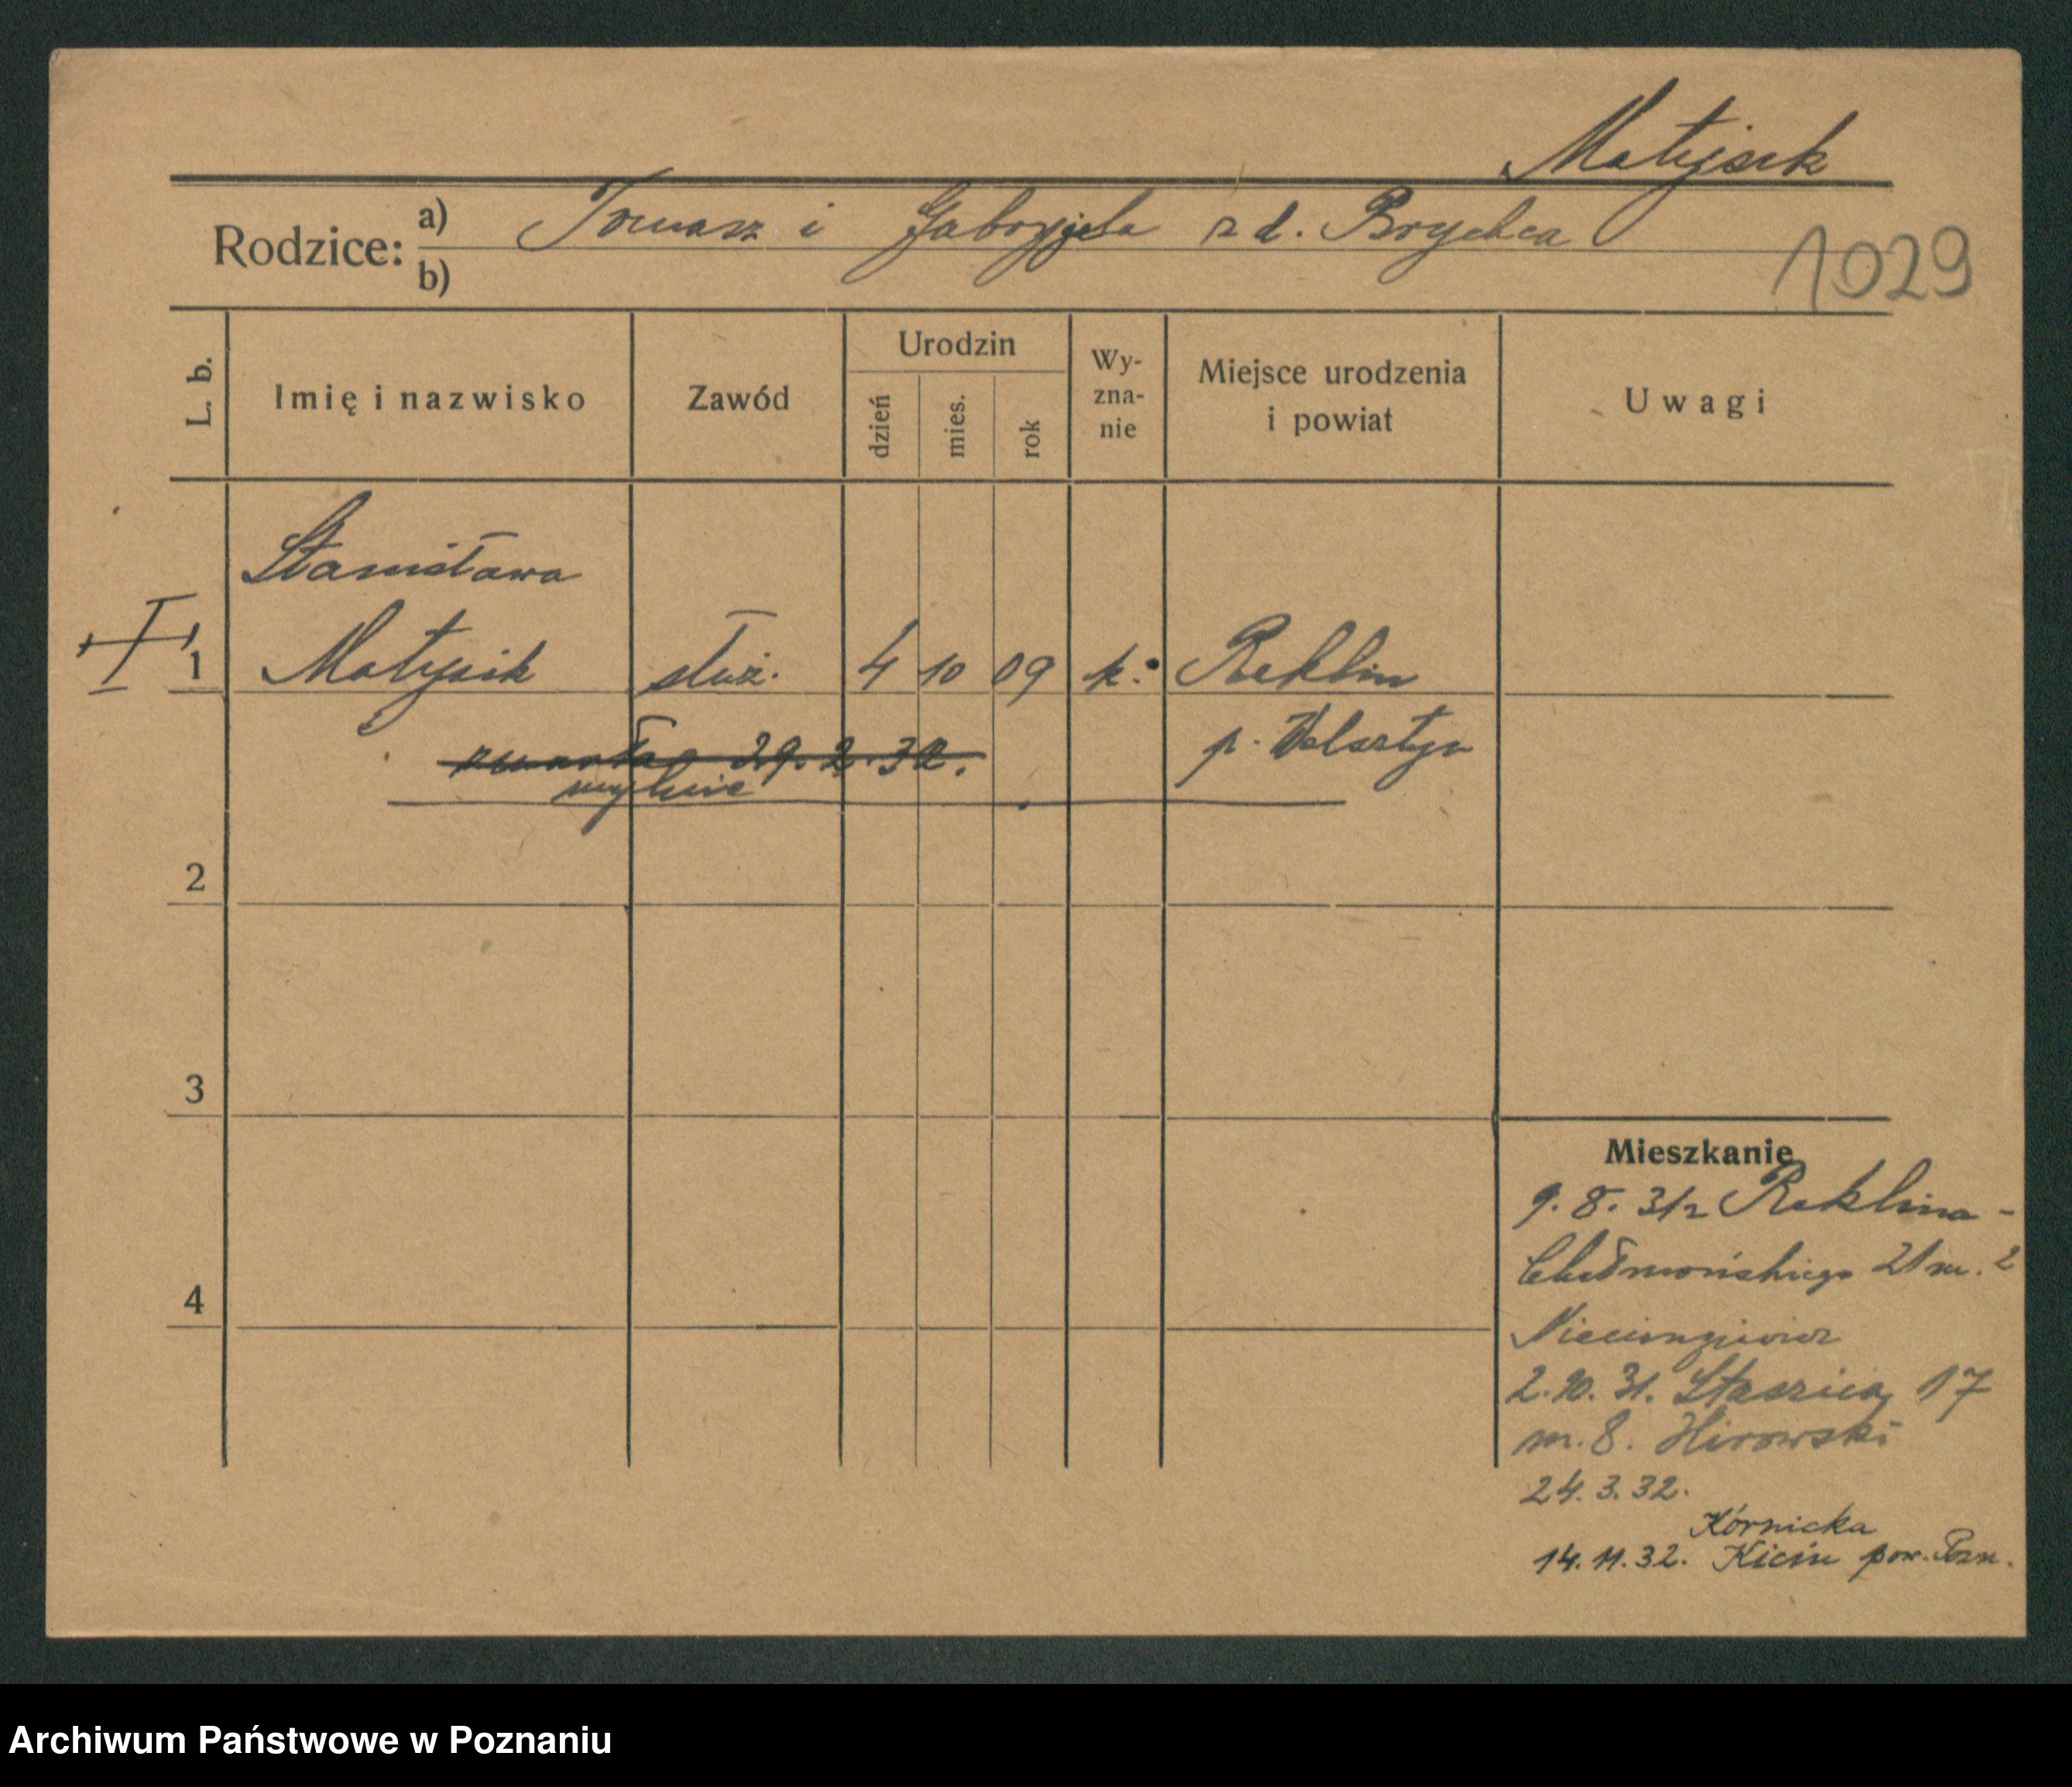 Matysik
Rodzice: a) Tomasz i Gabryjela z d. Brychca
b)
1029
L. b.
Imię i nazwisko
Zawód
Urodzin
dzień
mies.
rok
Wy-
zna-
nie
Miejsce urodzenia
i powiat
Uwagi
Stanisława
1 Matysik służ. 4 10 09 k. Reklin
p. Wolsztyn
zmarła 29. 2. 32.
mylnie
2
3
4
Mieszkanie
9. 8. 31 z Reklina -
Chełmońskiego 21 m. 2
2. 10. 31. Staszica 17
m. 8. Hirowski
24. 3. 32.
Kórnicka
14. 11. 32. Kicin pow. Pozn.
Archiwum Państwowe w Poznaniu